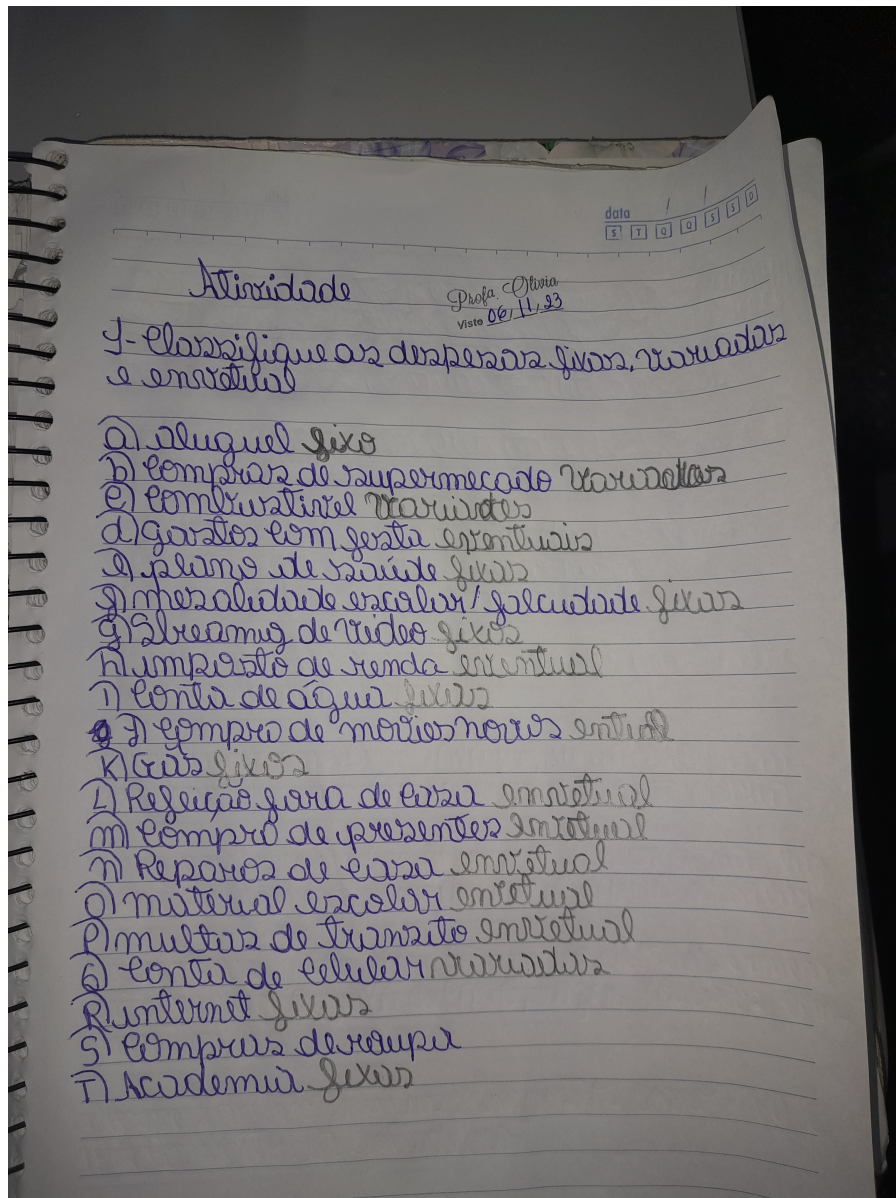 data / /
S T Q Q S S D
Atividade
Profa. Olivia
Visto 06/11/23
1-Classifique as despesas fixas, variadas
e envetual
a) aluguel fixo
b) compras de supermecado variadas
c) combustivel
d) gastos com festa eventuais
e) plano de saúde fixas
f) mesalidade escolar/falcudade fixas
g) Streamig de video fixos
h) imposto de renda eventual
I) conta de água fixas
J) compra de movies novos entual
K) Gás fixos
L) Refeição fora de casa emvetual
m) compra de presentes envetual
n) Reparos de casa envetual
O) material escolar envetual
P) multas de transito envetual
Q) conta de celular variadas
R) internet fixas
S) compras de roupa
T) Academia fixas